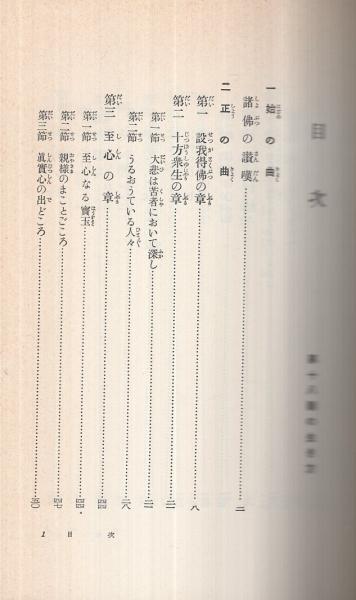 目次
一 始の曲
諸佛の讃嘆……二
二 正の曲
第一 設我得佛の章……八
第二 十方衆生の章……
第一節 大悲は苦者において深し……
第二節 うるおうている人々……二八
第三 至心の章……四四
第一節 至心なる寳玉……四四
第二節 親様のまことごころ……四七
第三節 眞實心の出どころ……五〇
1 目 次